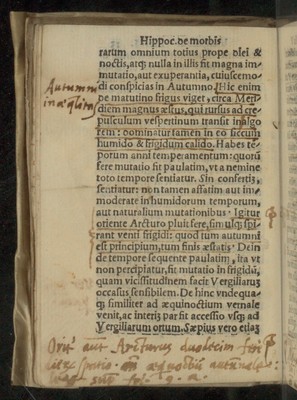 Hippoc. de morbis
rarum omnium totius prope diei &
noctis, atq; nulla in illis fit magna im-
mutatio, aut exuperantia, cuiuscemo-
di conspicias in Autumno. Hic enim
Autumni
pe matutino frigus viget, circa Meri-
inæqlitas
diem magnus æstus, qui rursus ad cre-
pusculum vespertinum transit in algo
rem: dominatur tamen in eo siccum
humido & frigidum calido. Habes te-
porum anni temperamentum: quorū
fere mutatio fit paulatim, vt a nemine
toto tempore sentiatur. Sin confertis,
sentiatur: non tamen affatim aut im-
moderate in humidorum temporum,
aut naturalium mutationibus. Igitur
oriente Arcturo pluit fere, simulq; spi-
rant venti frigidi: quod tum autumni
est principium, tum finis æstatis. Dein
de tempore sequente paulatim, ita vt
non percipiatur, fit mutatio in frigidū,
quam vicissitudinem facit Vergiliarum
occasus sensibilem. De hinc vndequa-
q; similiter ad æquinoctium vernale
venit, ac interij par fit accessio vsq; ad
Vergiliarum ortum. Sæpius vero etiā
Arcturus duodecim